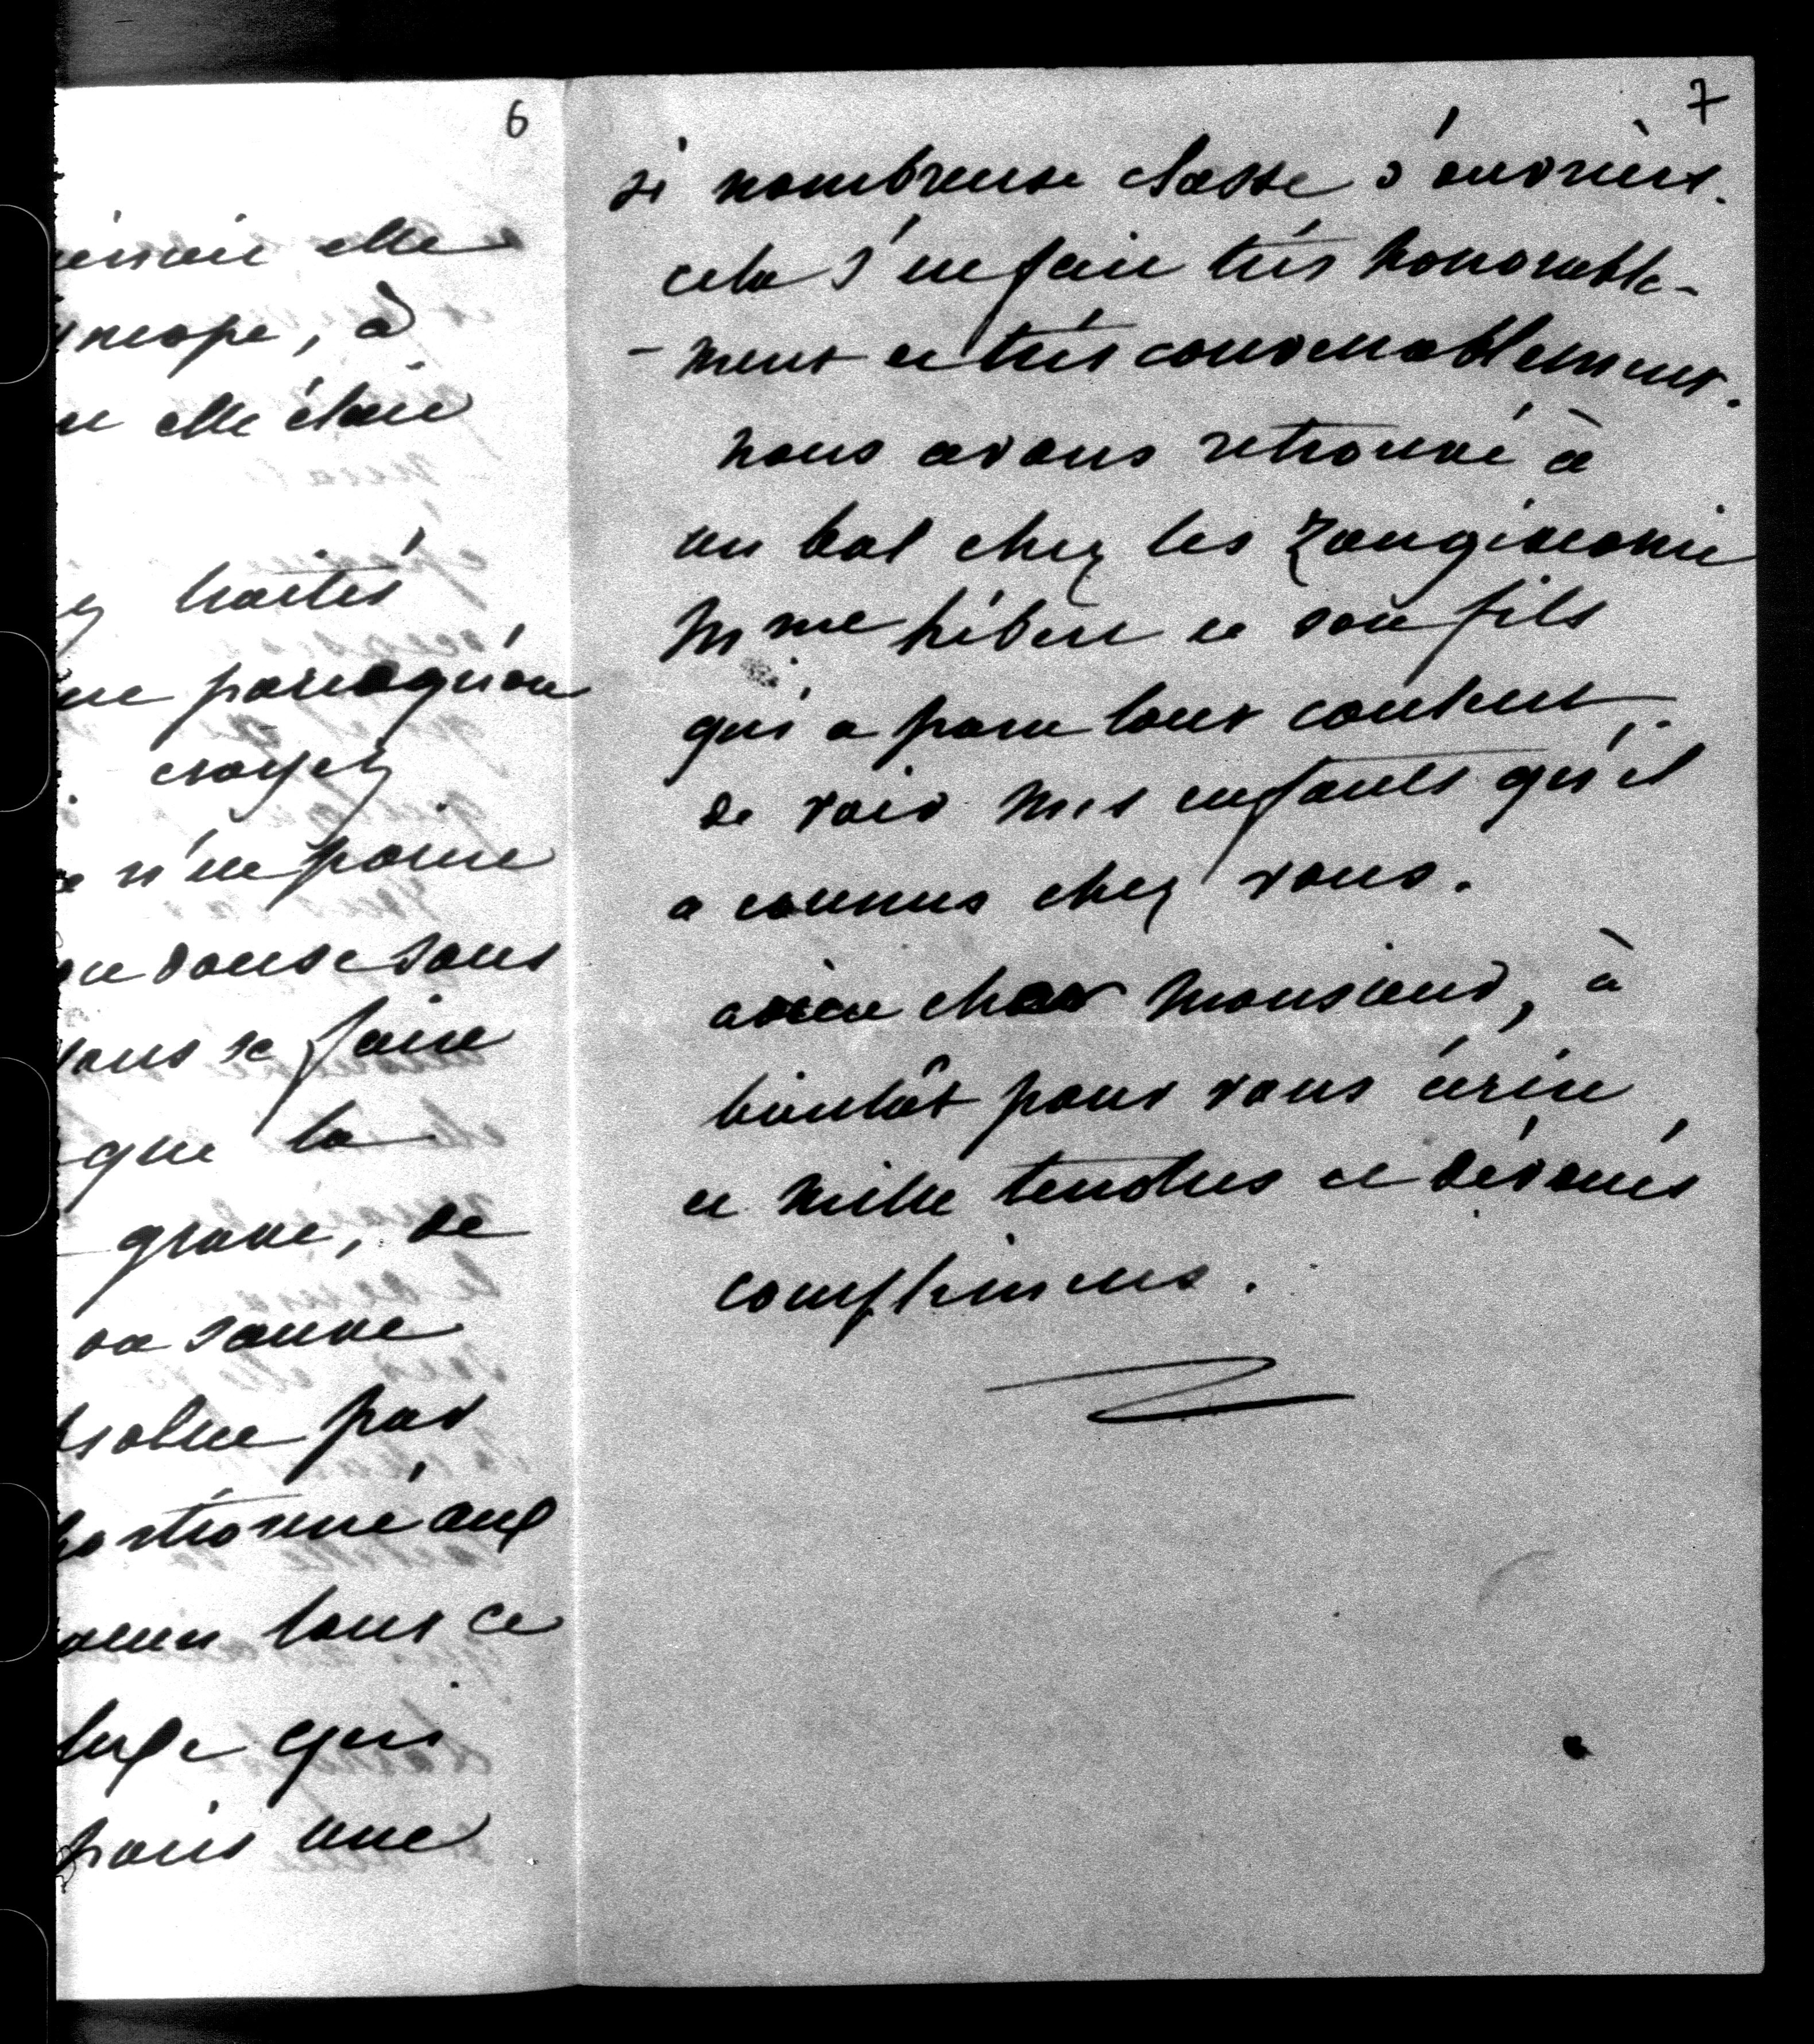 6
elle
, à
elle était
traités
parcequ'on
croyez
n'en
on danse sans
sans se faire
que la
grave, de
sauve
par
aux
tout ce
luxe qui
puis une
7
si nombreuse classe d'ouvriers.
cela s'en fait très honorable-
-ment et très convenablement.
nous avons retrouvé à
un bal chez les
Mme hébert et son fils
qui a paru tout content
de voir mes enfants qu'il
a connus chez vous.
adieu cher Monsieur, à
bientôt pour vous écrire
et mille tendres et dévoués
complimens.